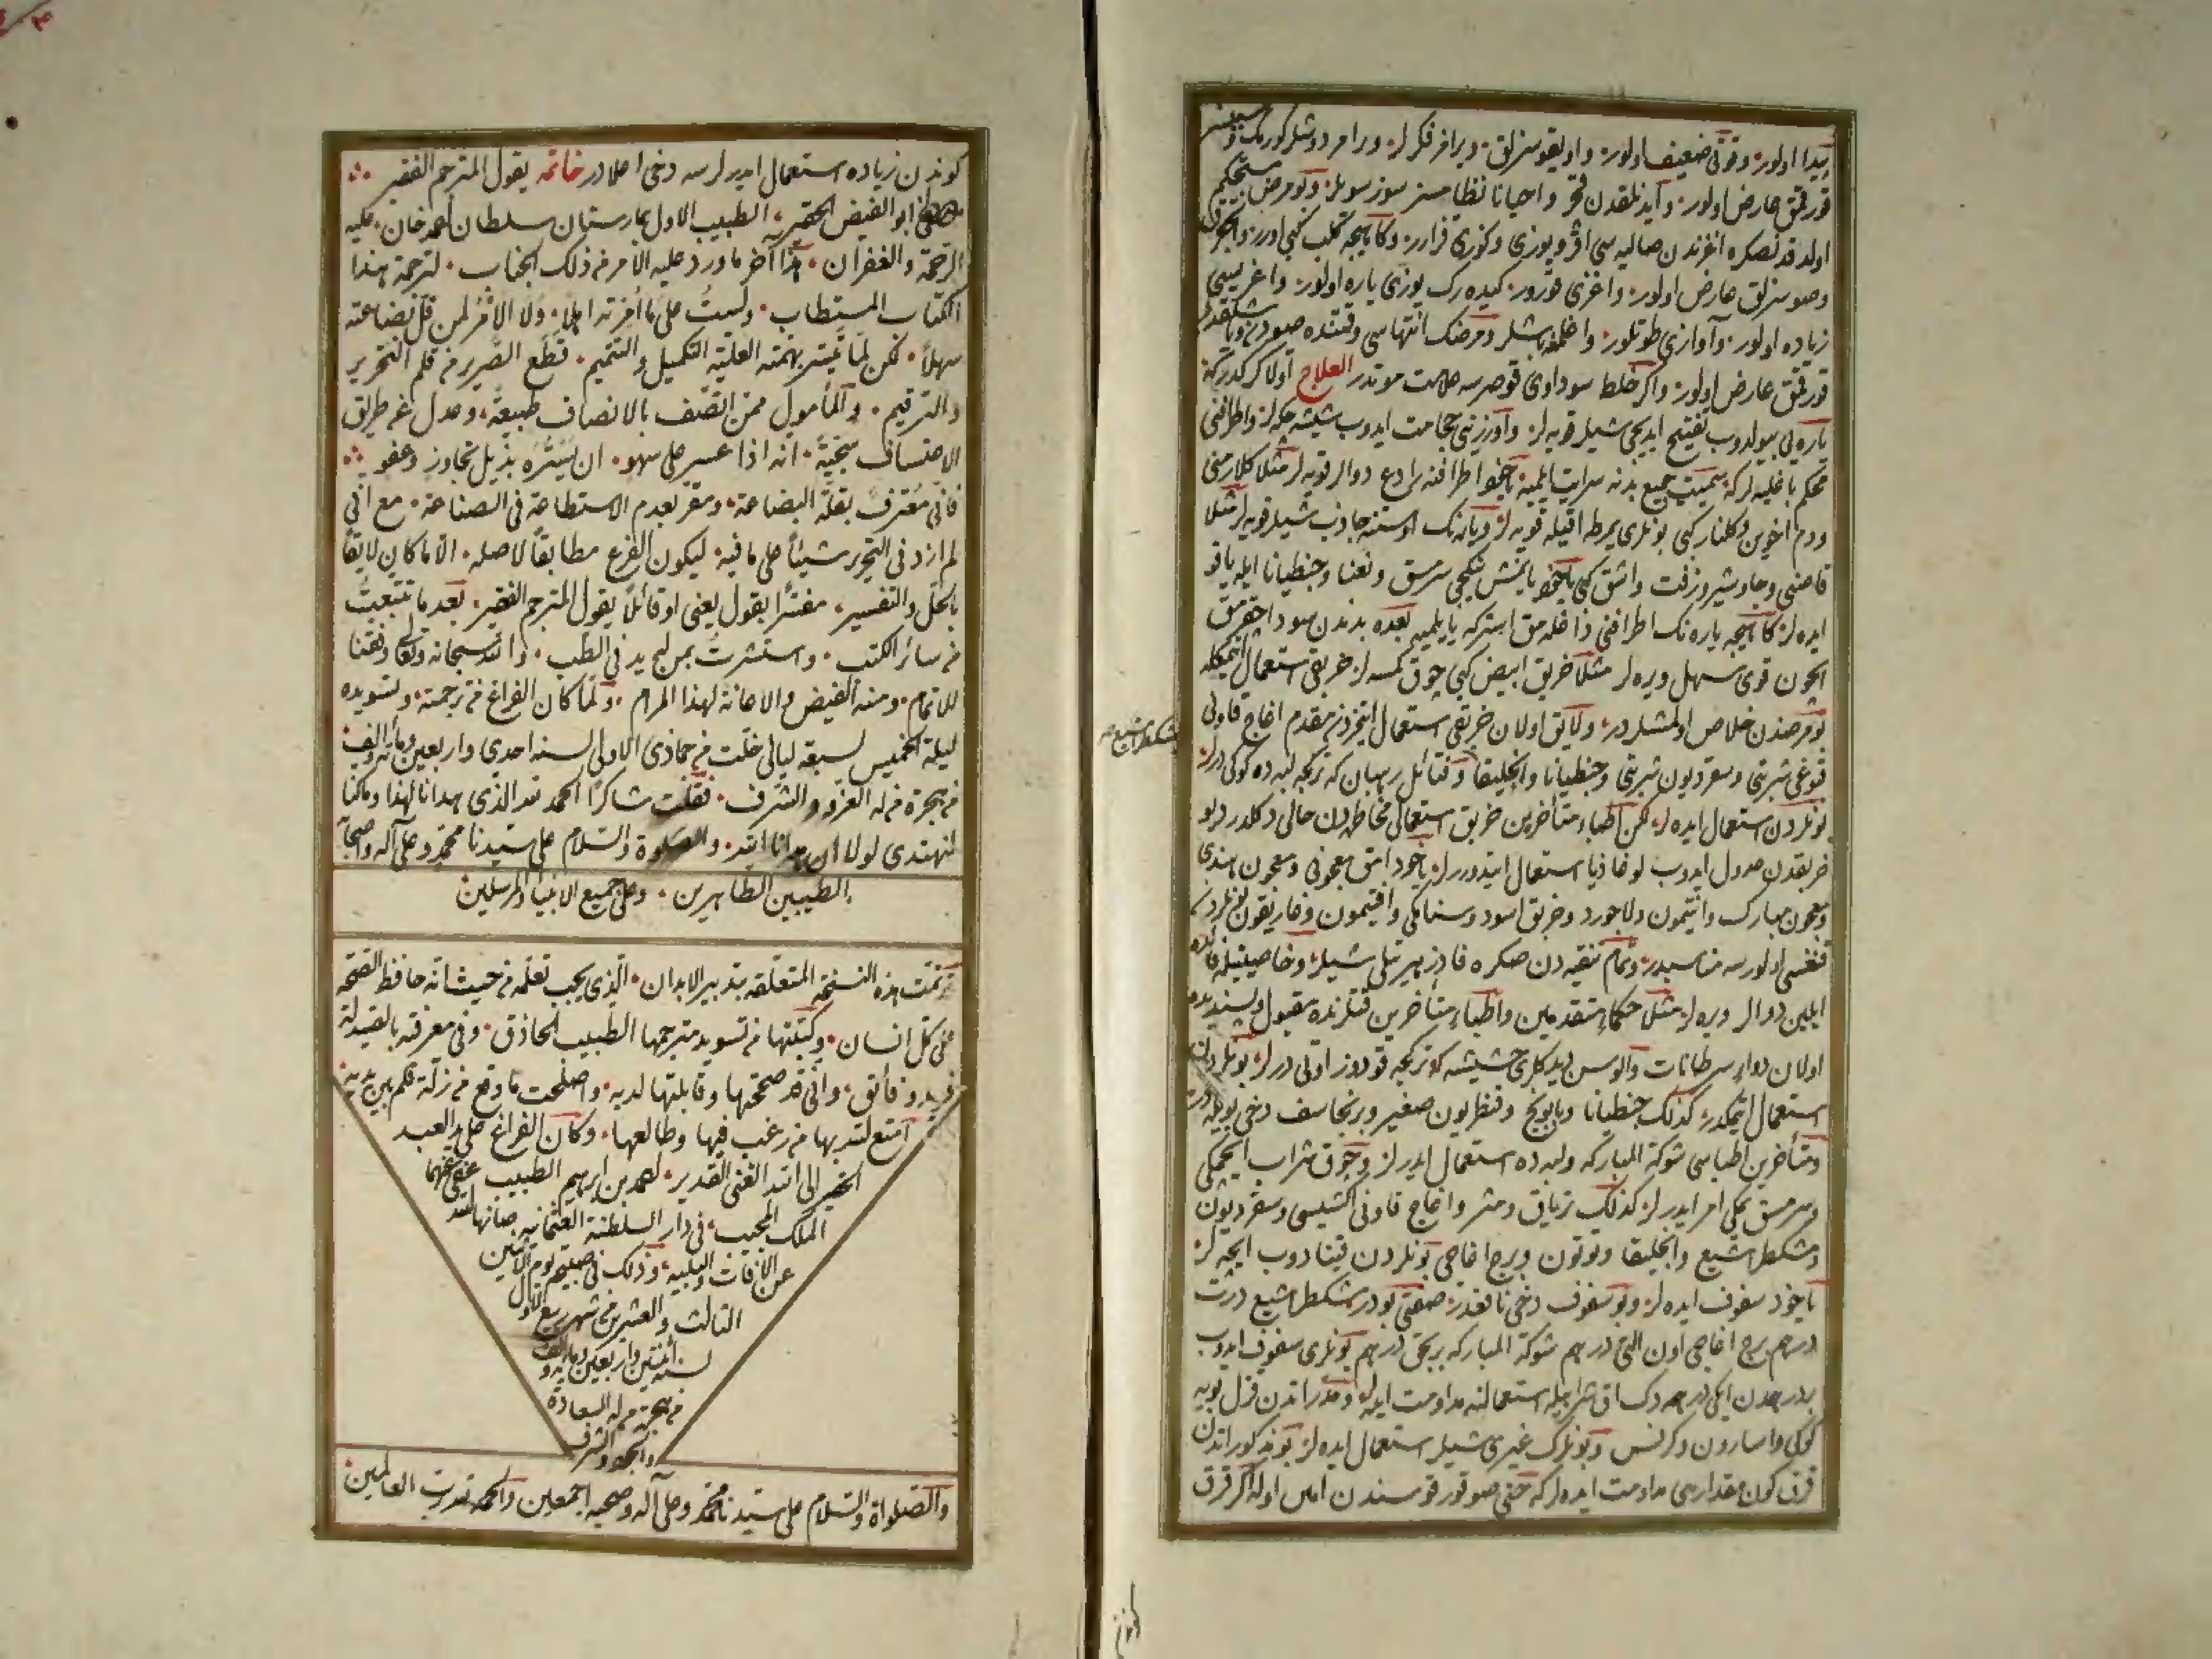 پیدا اولور وقوتی ضعیف اولور واویقوسزلق ویرامز فکرلر ویرامز دوشلر کورمک و
قورقمق عارض اولور وآیدنلقدن قچر واحیانا نظامسز سوز سویلر وبو مرض مستحکم
اولدقدنصکره اغزندن صالیه سی اقر ویوزی وکوزی قزارر وکاهیجه کلب کبی اورر
وصوسزلق عارض اولور واغزی قورور کیده رک یوزی یاره اولور واغریسی
زیاده اولور وآوازی طوتلور واغلمغه باشلر ومرضک انتهاسی وقتنده صودن
قورقمق عارض اولور واکر خلط سوداوی قوصرسه علامت موتدر العلاج اولا کرکدرکه
یاره یی بیولدوب تفتیح ایدیجی شیلر قویه لر واوزرینی حجامت ایدوب شیشه چکه لر واطرافنی
محکم باغلیه لرکه سمیت جمیع بدنه سرایت ایلمیه یاخود اطرافنه رادع دوالر قویه لر مثلا کل ارمنی
ودم اخوین وکلنار کبی بونلری یمرطه اقیله قویه لر ویاره نک اوستنه جاذب شیلر قویه لر مثلا
قاصنی وجاوشیر وزفت واشق کبی یاخود یابمش بالیجی سرمسق ونعنا وجنطیانا ایله یاقو
ایده لر کاهیجه یاره نک اطرافنی داغلامق استرکه یایلمیه بعده بدندن سودا چقرمق
ایچون قوی مسهل ویره لر مثلا خربق ابیض کبی چوق کمسه لر خربق استعمال ایتمکله
بو مرضدن خلاص اولمشلردر ولایق اولان خربقی استعمال ایتمزدن مقدم اغاج قاونی
قبوغی شربتی وسقردیون شربتی وجنطیانا وانجلیقا وقتائل رهبان که ترکیجه لبه ده کوکی دیرلر
بونلردن استعمال ایده لر لکن اطباء متأخرین خربق استعمالی مخاطره دن خالی دکلدر دیو
خربقدن عدول ایدوب لوغاذیا استعمال ایتدیررلر یاخود اتق معجونی ومعجون هندی
ومعجون مبارک وافتیمون ولاجورد وخربق اسود وسنامکی وافتیمون وغاریقون بونلردن
قنغسی اولورسه مناسبدر وتمام تنقیه دن صکره فادزهیرتلی شیلر وخاصیتیله فائده
ایلین دوالر ویره لر مثلا حکماء متقدمین واطباء متأخرین قتلرنده مقبول وپسندیده
اولان دواء سرطانات والوسن دیدکلری حشیشه که ترکیجه قودوز اوتی دیرلر بونلردن
استعمال ایتمکدر کذلک جنطیانا وبابونج وقنطریون صغیر وبرنجاسف دخی بویله در
ومتأخرین اطباسی شوکة المبارکه ولبه ده استعمال ایدرلر وچوق شراب ایچمکی
وسرمسق یمکی امر ایدرلر کذلک تریاق ومثر واغاج قاونی اکشیسی وسقردیون
ومشکطرامشیع وانجلیقا وتوتون وبرج اغاجی بونلردن قینادوب ایچه لر
یاخود سفوف ایده لر وبو سفوف دخی نافعدر صفتی بودر مشکطرامشیع درت
درهم برج اغاجی اون التی درهم شوکة المبارکه بر بچق درهم بونلری سفوف ایدوب
بر درهمدن ایکی درهمه دک اق شرابله استعمالنه مداومت ایده لر ومدراتدن قزل بویه
کوکی واسارون وکرفس وبونلرک غیری شیلر استعمال ایده لر بو مذکوراتدن
قرق کون مقداری مداومت ایده لرکه حتی صو قورقوسندن امین اوله اکر قرق
کوندن زیاده استعمال ایدرلرسه دخی اعلادر خاتمه یقول المترجم الفقیر
ابو الفیض الحقیر الطبیب الاول بیمارستان سلطان احمد خان علیه
الرحمة والغفران هذا آخر ما ورد علیه الامر من ذلک الجناب لترجمة هذا
الکتاب المستطاب ولست علی ما امرته اهلا ولا الامر لمن قل بضاعته
سهلا لکن لما تیسر بهمته العلیة التکمیل والتتمیم قطع الصریر من قلم التحریر
والترقیم والمأمول ممن اتصف بالانصاف طبیعة وعدل عن طریق
الاعتساف سجیة انه اذا عسر علی سهو ان یستره بذیل تجاوز وعفو
فانی معترف بقلة البضاعة ومقر بعدم الاستطاعة فی الصناعة مع انی
لم ازد فی التحریر شیئا علی ما فیه لیکون الفرع مطابقا لاصله الا ما کان لایقا
بالحل والتفسیر مفسرا بقول یعنی او قائلا یقول المترجم الفقیر بعد ما تتبعت
من سائر الکتب واستشرت بمن له ید فی الطب والله سبحانه وتعالی وفقنا
للاتمام ومنه الفیض والاعانة لهذا المرام ولما کان الفراغ من ترجمته وتسویده
لیلة الخمیس لسبعة لیالی خلت من جمادی الاولی لسنة احدی واربعین ومأة والف
من هجرة من له العز والشرف فقلت شاکرا الحمد لله الذی هدانا لهذا وما کنا
لنهتدی لولا ان هدانا الله والصلوة والسلام علی سیدنا محمد وعلی آله واصحابه
الطیبین الطاهرین وعلی جمیع الانبیاء والمرسلین
قد تمت هذه النسخة المتعلقة بتدبیر الابدان الذی یجب تعلمه من حیث انه حافظ الصحة
علی کل انسان وکتبتها من تسوید مترجمها الطبیب الحاذق وفی معرفته بالصیدلة
فرید وفائق وانی قد صححتها وقابلتها لدیه واصلحت ما وقع من زلة قلم بین یدیه
امتع الله بها من رغب فیها وطالعها وکان الفراغ علی ید العبد
الحقیر الی الله الغنی القدیر احمد بن ابرهیم الطبیب عفی عنهما
الملک المجیب فی دار السلطنة العثمانیه صانها الله
عن الآفات والبلیه وذلک فی صبیحة یوم الاثنین
الثالث والعشرین من شهر ربیع الاول
لسنة اثنتین واربعین ومایه والف
من هجرة من له السعادة
والمجد والشرف
والصلواة والسلام علی سیدنا محمد وعلی آله وصحبه اجمعین والحمد لله رب العالمین